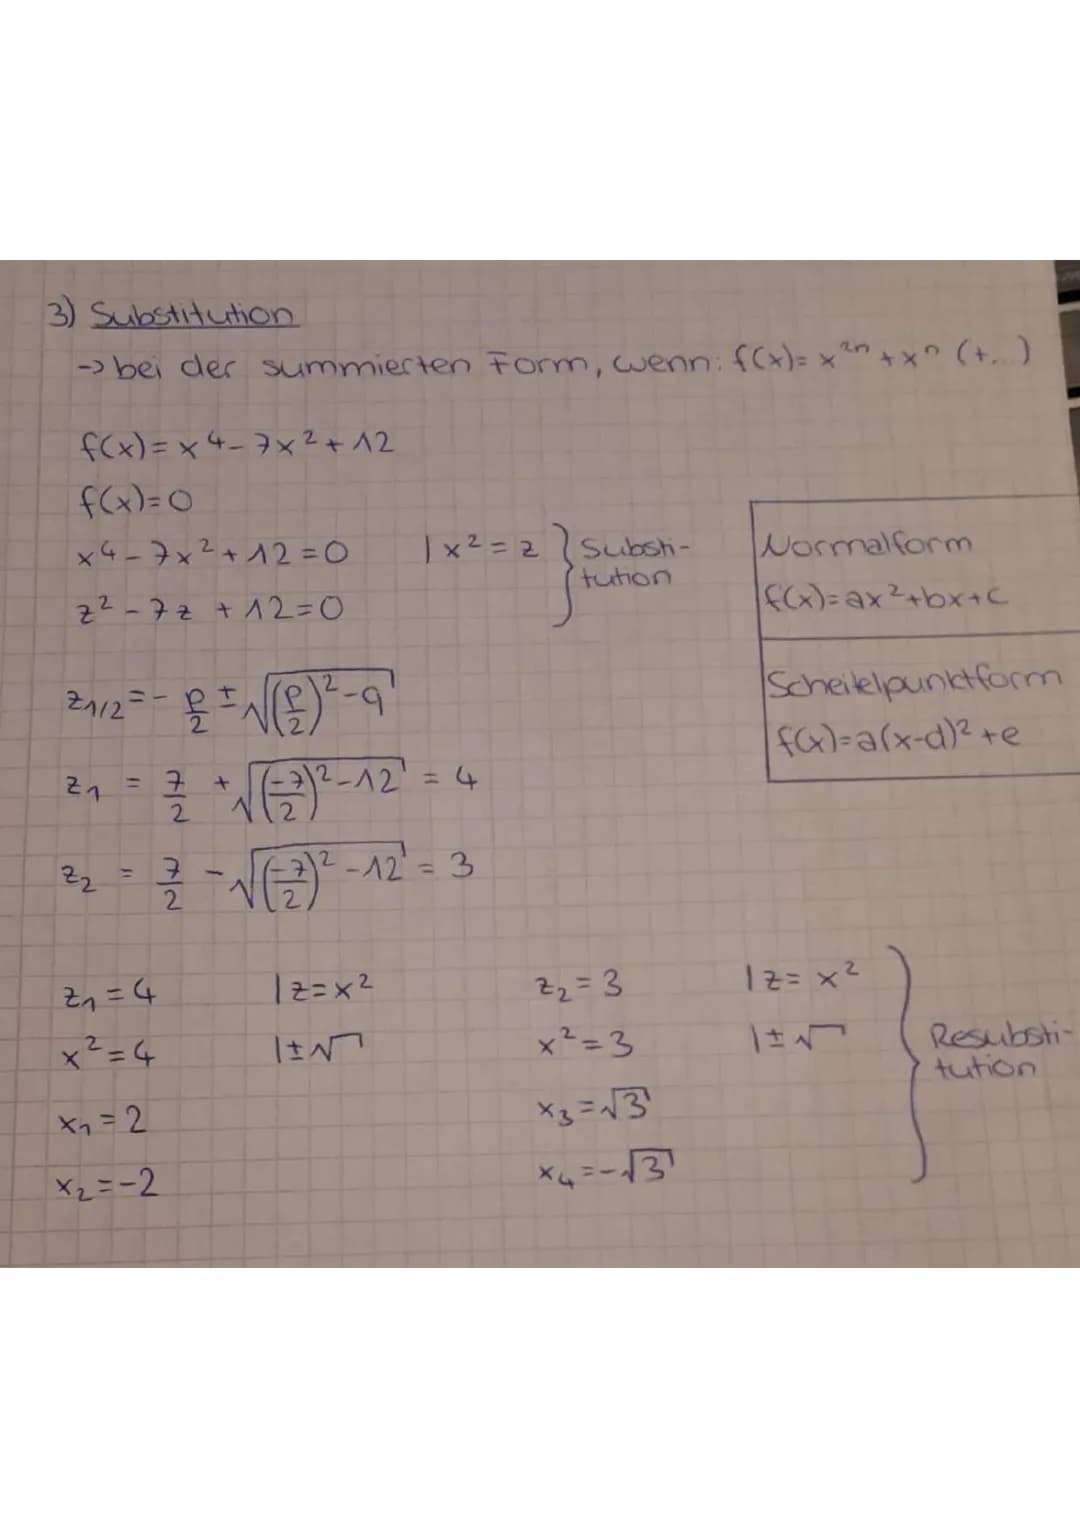 3) Substitution
-> bei der summierten Form, wenn: f(x)= x²ⁿ + xⁿ (+...)
f(x)= x⁴ - 7x² + 12
f(x)=0
x⁴ - 7x² + 12 = 0 | x² = z } Substi-
tution
z² - 7z + 12 = 0
Normalform
f(x)=ax²+bx+c
Scheitelpunktform
f(x)=a(x-d)²+e
z₁/₂ = - p/2 ± √((p/2)² - q)
z₁ = 7/2 + √((-7/2)² - 12) = 4
z₂ = 7/2 - √((-7/2)² - 12) = 3
z₁ = 4 | z = x² z₂ = 3 | z = x²
x² = 4 | ±√ x² = 3 | ±√ } Resubsti-
tution
x₁ = 2 x₃ = √3
x₂ = -2 x₄ = -√3